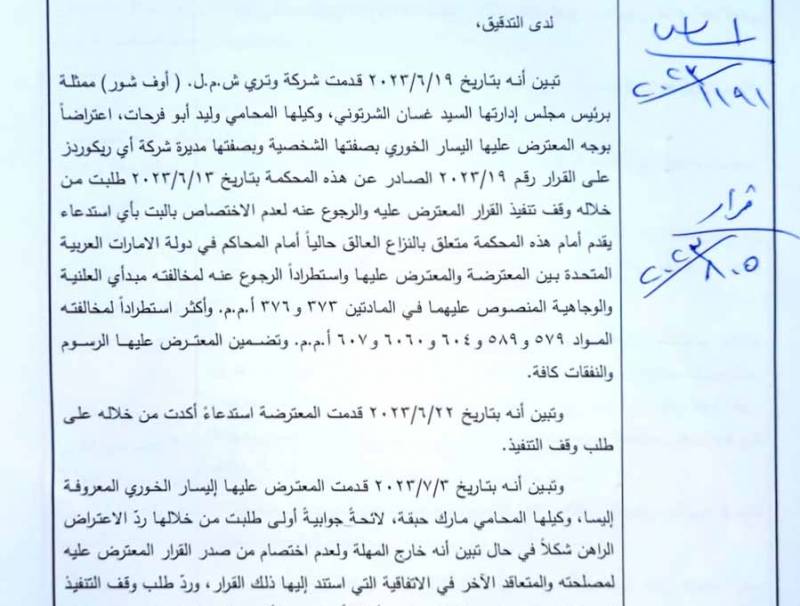 لدى التدقيق،
تبين أنه بتاريخ ٢٠٢٣/٦/١٩ قدمت شركة وتري ش.م.ل. (أوف شور) ممثلة
برئيس مجلس إدارتها السيد غسان الشرتوني، وكيلها المحامي وليد أبو فرحات، اعتراضاً
بوجه المعترض عليها اليسار الخوري بصفتها الشخصية وبصفتها مديرة شركة أي ريكوردز
على القرار رقم ٢٠٢٣/١٩ الصادر عن هذه المحكمة بتاريخ ٢٠٢٣/٦/١٣ طلبت من
خلاله وقف تنفيذ القرار المعترض عليه والرجوع عنه لعدم الاختصاص بالبت بأي استدعاء
يقدم أمام هذه المحكمة متعلق بالنزاع العالق حالياً أمام المحاكم في دولة الامارات العربية
المتحدة بين المعترضة والمعترض عليها واستطراداً الرجوع عنه لمخالفته مبدأي العلنية
والوجاهية المنصوص عليهما في المادتين ٣٧٣ و ٣٧٦ أ.م.م. وأكثر استطراداً لمخالفته
المواد ٥٧٩ و ٥٨٩ و ٦٠٤ و ٦٠٦٠ و ٦٠٧ أ.م.م. وتضمين المعترض عليها الرسوم
والنفقات كافة.
وتبين أنه بتاريخ ٢٠٢٣/٦/٢٢ قدمت المعترضة استدعاءً أكدت من خلاله على
طلب وقف التنفيذ.
وتبين أنه بتاريخ ٢٠٢٣/٧/٣ قدمت المعترض عليها إليسار الخوري المعروفة
إليسا، وكيلها المحامي مارك حبقة، لائحةً جوابيةً أولى طلبت من خلالها ردّ الاعتراض
الراهن شكلاً في حال تبين أنه خارج المهلة ولعدم اختصام من صدر القرار المعترض عليه
لمصلحته والمتعاقد الآخر في الاتفاقية التي استند إليها ذلك القرار، وردّ طلب وقف التنفيذ
اساس
٢٠٢٣/١١٩١
قرار
٢٠٢٣/٨٠٥